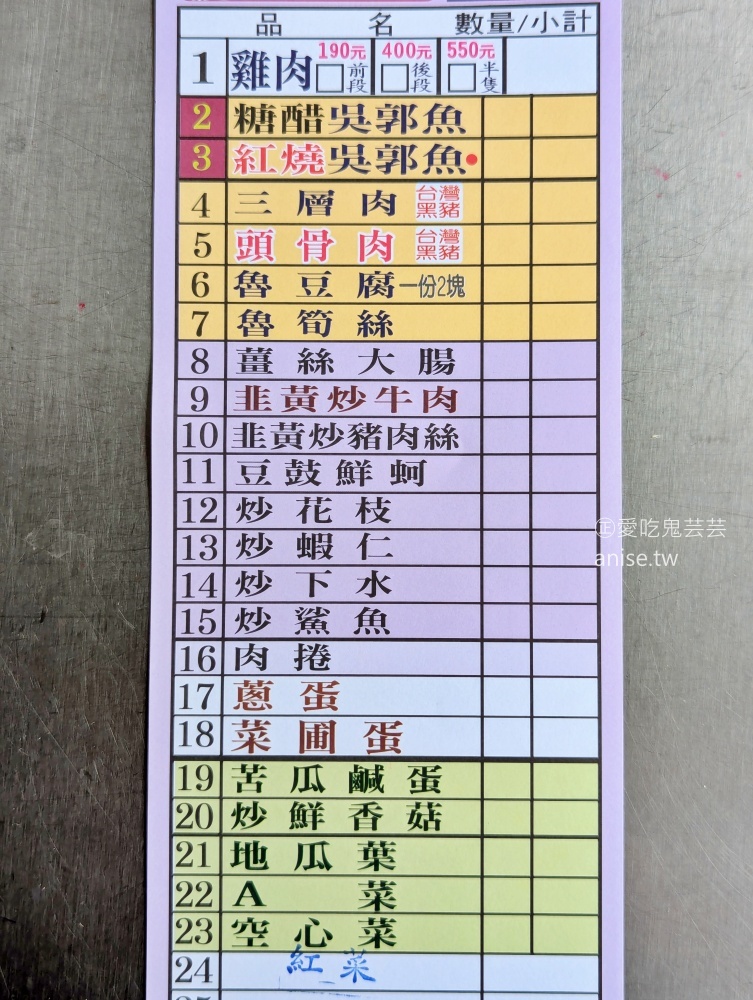 品 名 數量/小計
1 雞肉 190元 □前段 400元 □後段 550元 □半隻
2 糖醋吳郭魚
3 紅燒吳郭魚
4 三層肉 台灣黑豬
5 頭骨肉 台灣黑豬
6 魯豆腐 一份2塊
7 魯筍絲
8 薑絲大腸
9 韭黃炒牛肉
10 韭黃炒豬肉絲
11 豆鼓鮮蚵
12 炒花枝
13 炒蝦仁
14 炒下水
15 炒鯊魚
16 肉捲
17 蔥蛋
18 菜圃蛋
19 苦瓜鹹蛋
20 炒鮮香菇
21 地瓜葉
22 A菜
23 空心菜
24 紅菜
㊣愛吃鬼芸芸
anise.tw